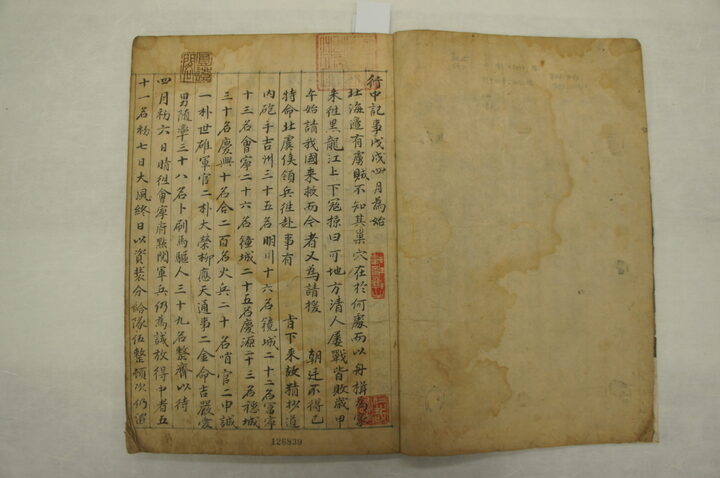 行中記事戊戌四月為始
北海邊有虜賊不知其巢穴在於何處而以舟楫為家
來往黑龍江上下冦掠曰可地方清人屢戰皆敗歲甲
午始請我國來救而今者又為請援 朝廷不得已
特命北虞侯領兵往赴事有 旨下來故精抄道
內砲手吉州三十五名明川十六名鏡城二十二名富寧
十三名會寧二十六名鐘城二十五名慶源二十三名穩城
三十名慶興十名合二百名火兵二十名哨官二申誠
一朴世雄軍官二朴大榮柳應天通事二金命吉嚴愛
男隨率三十八名卜刷馬驅人三十九名整齊以待
四月初六日時往會寧府點閱軍兵仍為試放得中者五
十一名初七日大風終日以資裝分給隊伍整頓次仍留
126839